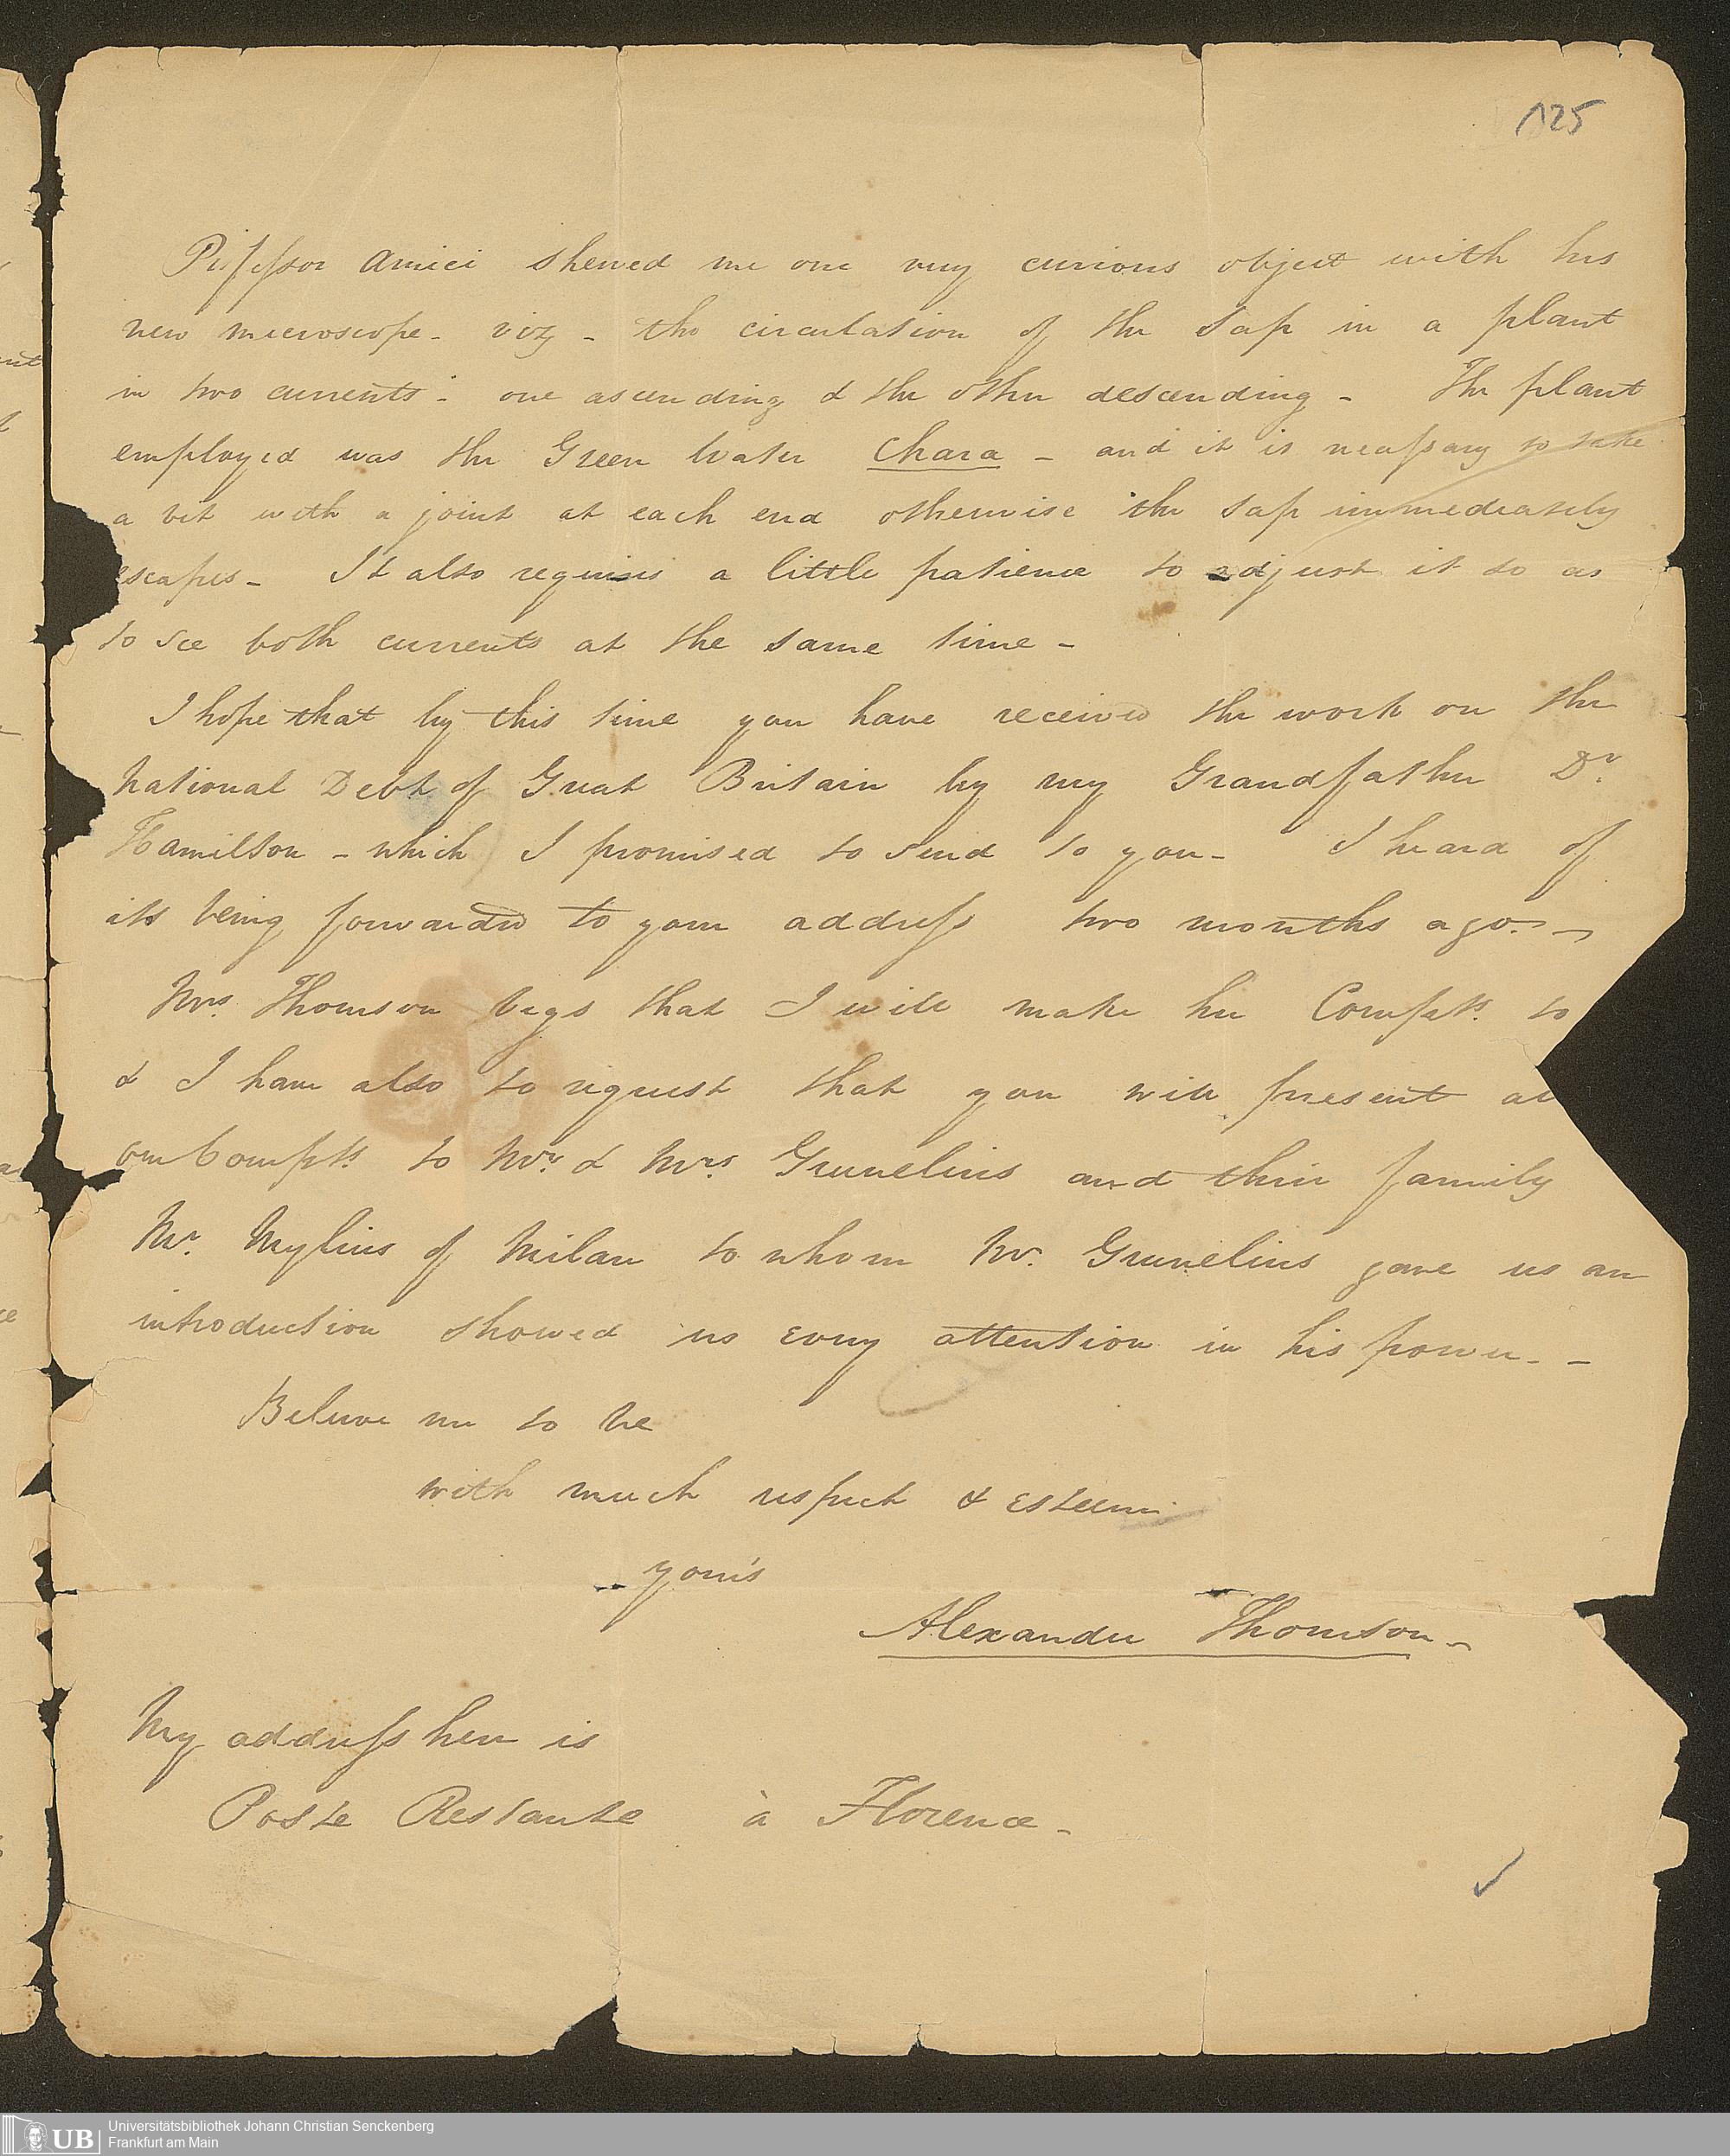 125
Professor Amici shewed me one very curious object with his
new microscope - viz - the circulation of the Sap in a plant
in two currents - one ascending & the other descending - The plant
employed was the Green Water Chara - and it is necessary to take
a bit with a joint at each end otherwise the Sap immediately
escapes - It also requires a little patience to adjust it so as
to see both currents at the same time -
I hope that by this time you have received the work on the
National Debt of Great Britain by my Grandfather Dr.
Hamilton - which I promised to send to you - I heard of
its being forwarded to your address two months ago. -
Mrs. Thomson begs that I will make her Compts. to
& I have also to request that you will present al
our Compts. to Mr. & Mrs. Grunelius and their family
Mr. Mylius of Milan to whom Mr. Grunelius gave us an
introduction showed us every attention in his power. -
Believe me to be
with much respect & esteem
yours
Alexander Thomson -
My address here is
Poste Restante à Florence -
UB Universitätsbibliothek Johann Christian Senckenberg
Frankfurt am Main